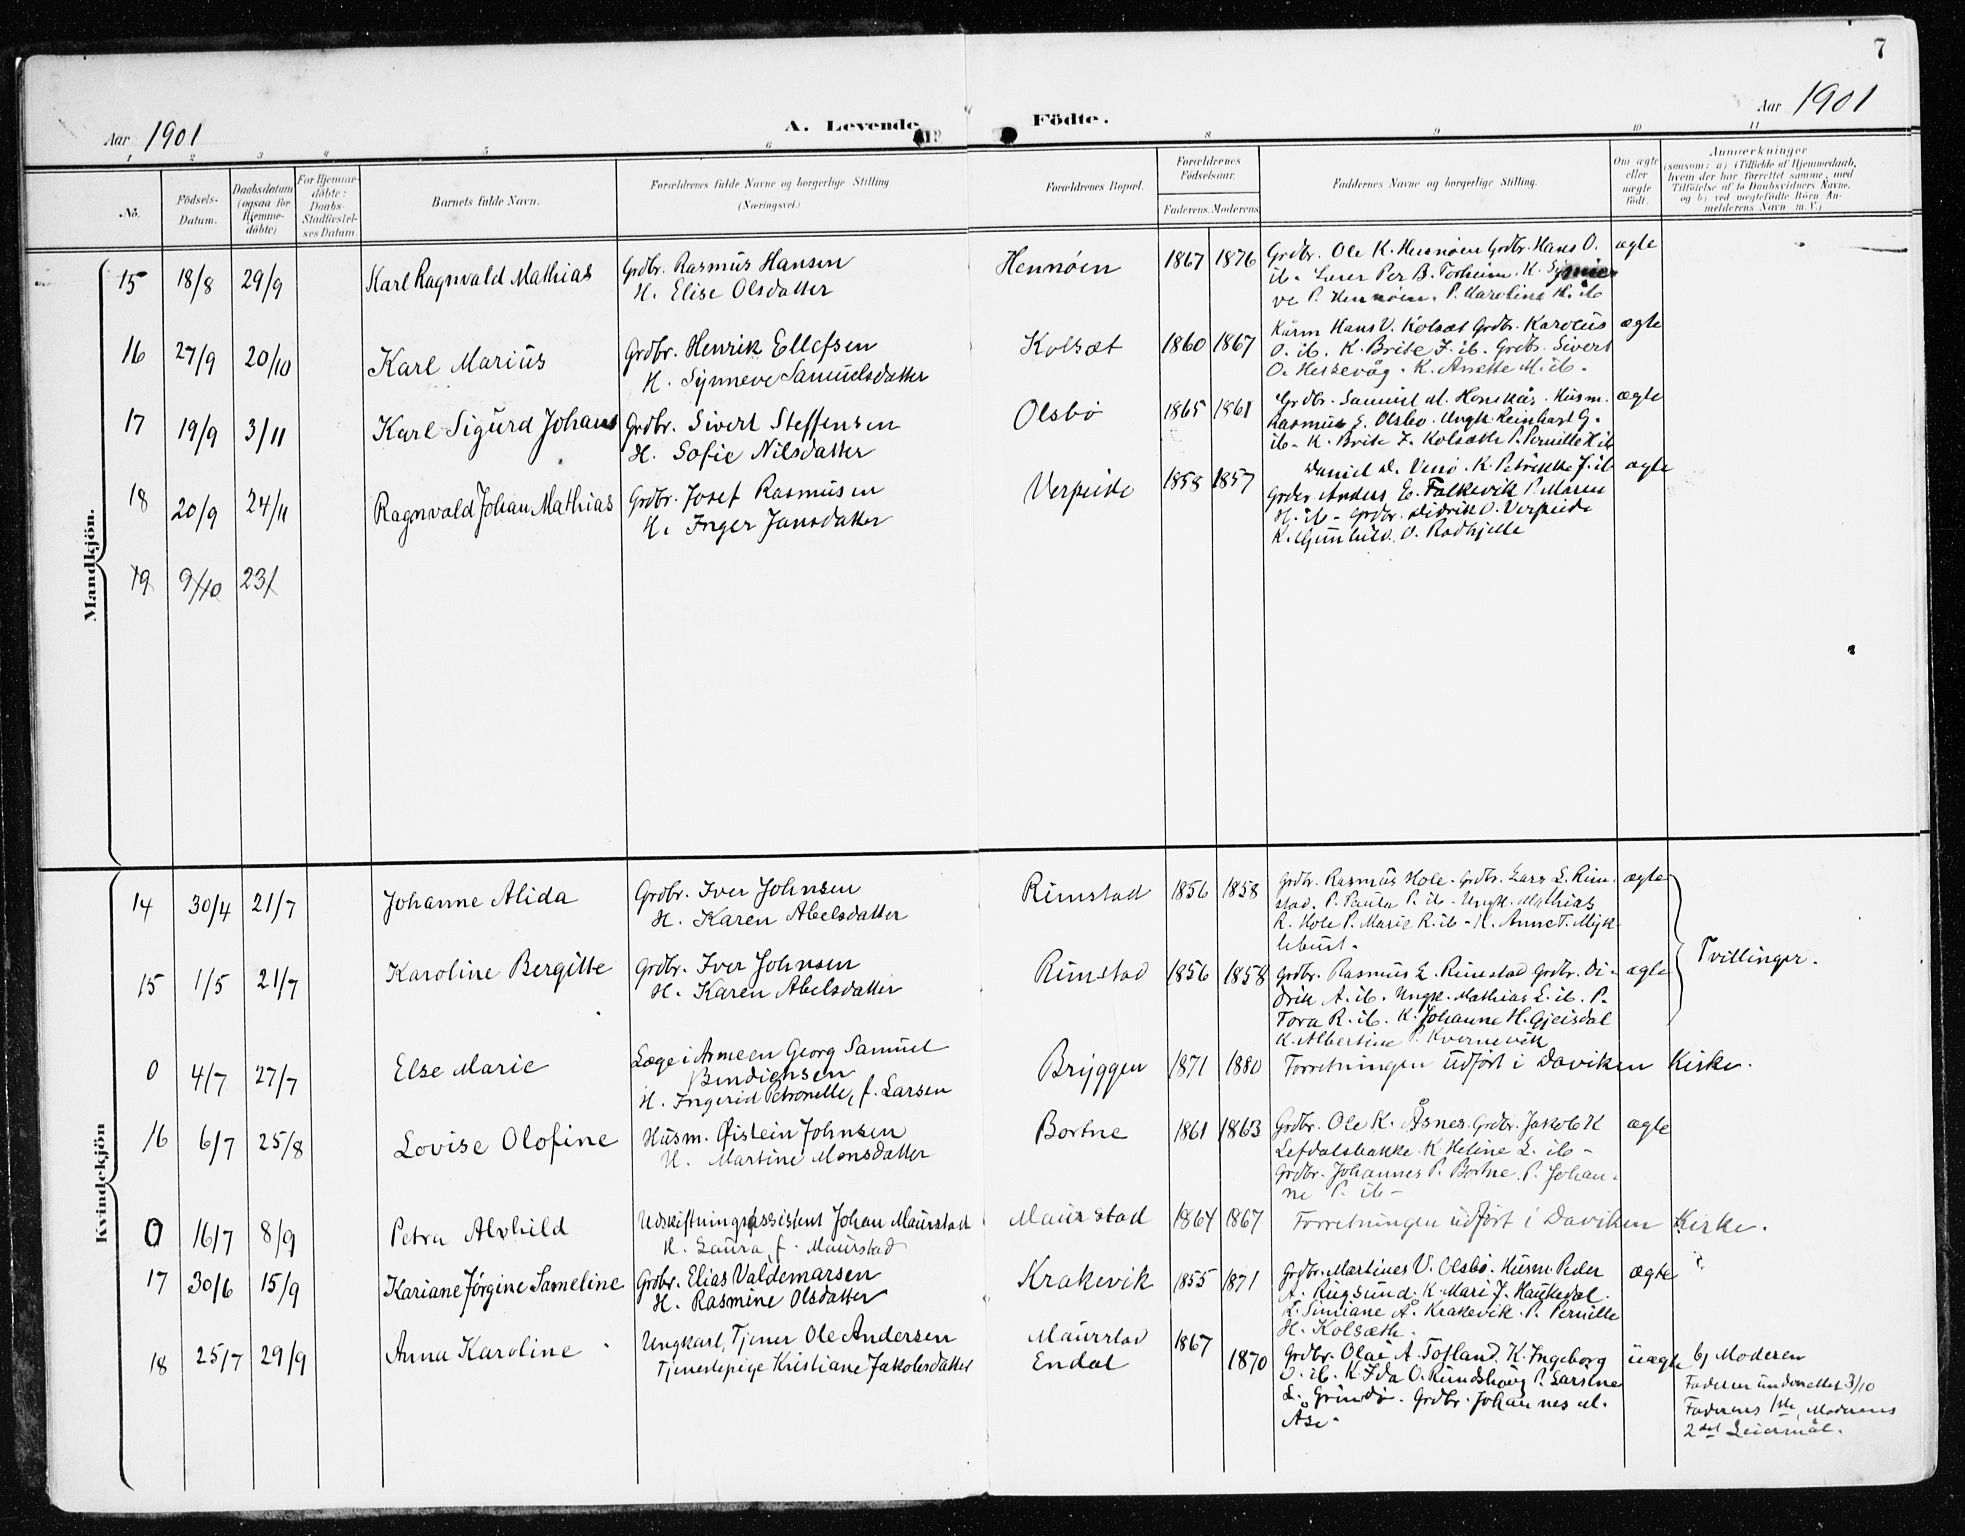 7
Aar 1901
A. Levende Födte.
Aar 1901
1 2 3 4 5 6 8 9 10 11
No.
Födsels-
Datum.
Daabsdatum
(ogsaa for
Hjemme-
döbte)
For Hjemme-
döbte:
Daabs-
Stadfæstel-
ses Datum.
Barnets fulde Navn.
Forældrenes fulde Navne og borgerlige Stilling
(Næringsvei.)
Forældrenes Bopæl.
Forældrenes
Födselsaar.
Faderens. Moderens
Faddernes Navne og borgerlige Stilling.
Om ægte
eller
uægte
født.
Anmærkninger
(saasom: a) i Tilfælde af Hjemmedaab,
hvem der har forrettet samme, med
Tilföielse af to Daabsvidners Navne.
og b) ved uægtefödte Börn An-
melderens Navn m. V.)
Mandkjön.
15 18/8 29/9 Karl Ragnvald Mathias
Grdbr. Rasmus Hansen
H. Elise Olsdatter
Hennøen 1867 1876
Grdbr. Ole K. Hennøen Grdbr. Hans O.
ib. Lærer Per B. Torheim. K.
ve P. Hennøen. P. Karolina H. ib
ægte
16 27/9 20/10 Karl Marius
Grdbr. Henrik Ellefsen
H. Synneve Samuelsdatter
Kolsæt 1860 1867
Kårm Hans V. Kolsæt Grdbr. Karolus
O. ib. K. Brite J. ib. Grdbr. Sivert
O. Hessevåg. K. Anette M. ib.
ægte
17 19/9 3/11 Karl Sigurd Johans
Grdbr. Sivert Steffensen
H. Sofie Nilsdatter
Olsbø 1865 1861
Grdbr. Samuel M. Husm.
Rasmus S. Olsbø. Ungk. Reinhart G.
ib. K. Brite J. Kolsæth P. Pernille H. ib
ægte
18 20/9 24/11 Ragnvald Johan Mathias
Grdbr. Josef Rasmusen
H. Inger Jansdatter
Verpeide 1858 1857
Daniel D. K. Petrikke J. ib
Grdbr. Anders E. Falkevik P. Maren
H. ib - Grdbr. Didrik O. Verpeide
K. Gunhild O. Rodhjelle
ægte
19 9/10 23/
Kvindekjön
14 30/4 21/7 Johanne Alida
Grdbr. Iver Johnsen
H. Karen Abelsdatter
Rimstad 1856 1858
Grdbr. Rasmus Hole. Grdbr. Lars L. Rim-
stad. P. Paula P. ib - Ungk. Mathias
R. Hole P. Marie R. ib - K. Anne T. Myk-
lebust.
ægte
15 1/5 21/7 Karoline Bergitte
Grdbr. Iver Johnsen
H. Karen Abelsdatter
Rimstad 1856 1858
Grdbr. Rasmus L. Rimstad Grdbr. Di-
drik A. ib. Ungk. Mathias L. ib. P.
Tora R. ib. K. Johanne H. Gjeisdal
K. Albertine P. Kvernevik
ægte
Tvillinger.
0 4/7 27/7 Else Marie
Læge i Armeen Georg Samuel
Bendigsen
H. Ingerid Petronelle, f. Larsen
Bryggen 1871 1880
Forretningen udført i Daviken Kirke.
16 6/7 25/8 Lovise Olofine
Husm. Øistein Johnsen
H. Martine Monsdatter
Bortne 1861 1863
Grdbr. Ole K. Åsnes. Grdbr. Jakob K
Lefdalsbakke. K. Heline L. ib -
Grdbr. Johannes P. Bortne. P. Johan-
ne P. ib -
ægte
0 16/7 8/9 Petra Alvhild
Udskiftningsassistent Johan Maurstad
H. Laura, f. Maurstad
Maurstad 1864 1867
Forretningen udført i Daviken Kirke.
17 30/6 15/9 Kariane Jørgine Sameline
Grdbr. Elias Valdemarsen
H. Rasmine Olsdatter
Krakevik 1855 1871
Grdbr. Martines V. Olsbø. Husm. Peder
A. Rugsund. K. Mari J. Haukedal.
K. Simiane Å. Krakevik. P. Pernille
H. Kolsæth.
ægte
18 25/7 29/9 Anna Karoline
Ungkarl, Tjener Ole Andersen
Tjenestepige Kristiane Jakobsdatter
Maurstad
Endal
1867
1870
Grdbr. Olai A. Totland. K. Ingeborg
O. ib. K. Ida O. P. Larsine
L. Grindø. Grdbr. Johannes M.
Ase.
uægte
b) Moderen
Faderen 3/10
Faderens 1ste, Moderens
2det Leiermål.